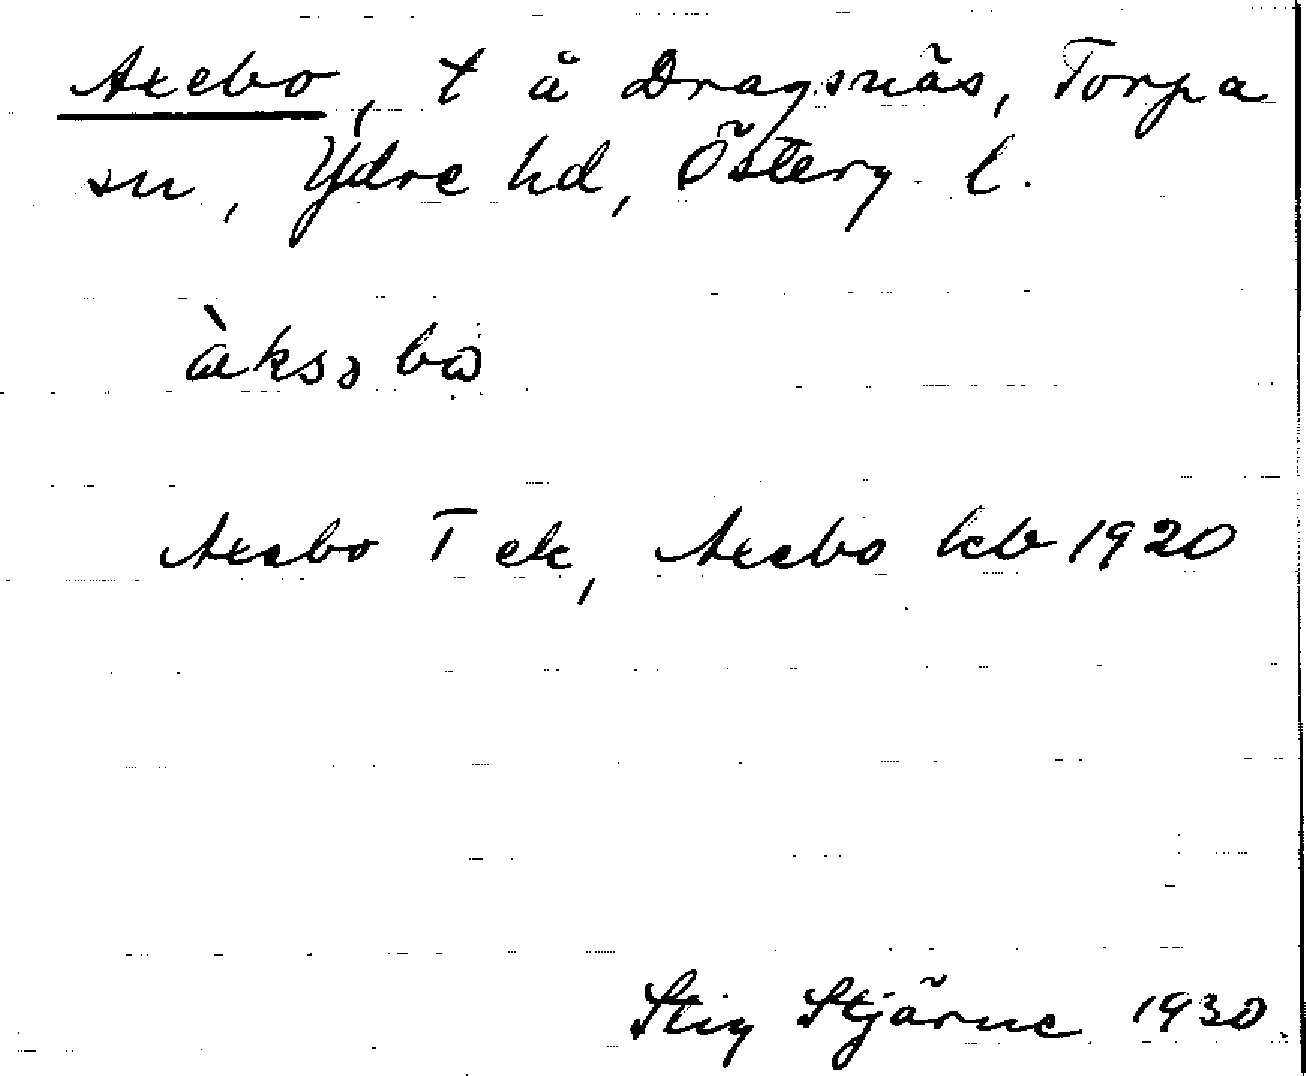 Axebo, t å Dragsnäs, Torpa
sn, Ydre hd, Österg. l.
àksəbω
Axebo T ek, Axebo kb 1920
Stig Stjärne 1930